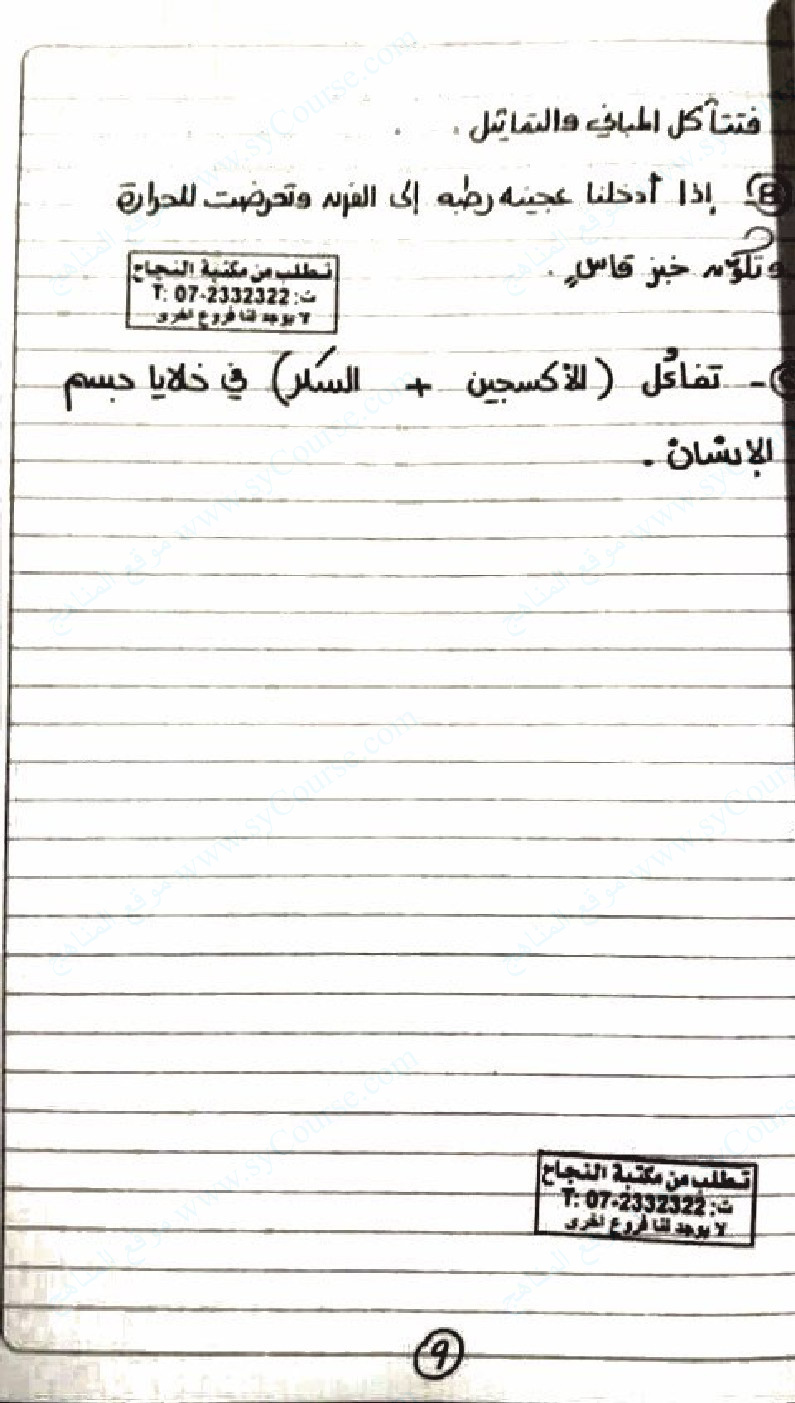 فتتأكل المباني والتماثيل .
B - إذا أدخلنا عجينه رطبه إلى الفرن وتعرضت للحرارة
وتكوّن خبز قاسٍ .
تطلب من مكتبة النجاح
ت: T: 07-2332322
لا يوجد لنا فروع اخرى
- تفاعُل (الأكسجين + السكر) في خلايا جسم
الإنسان .
تطلب من مكتبة النجاح
ت: T: 07-2332322
لا يوجد لنا فروع اخرى
9
موقع المناهج www.syCourse.com